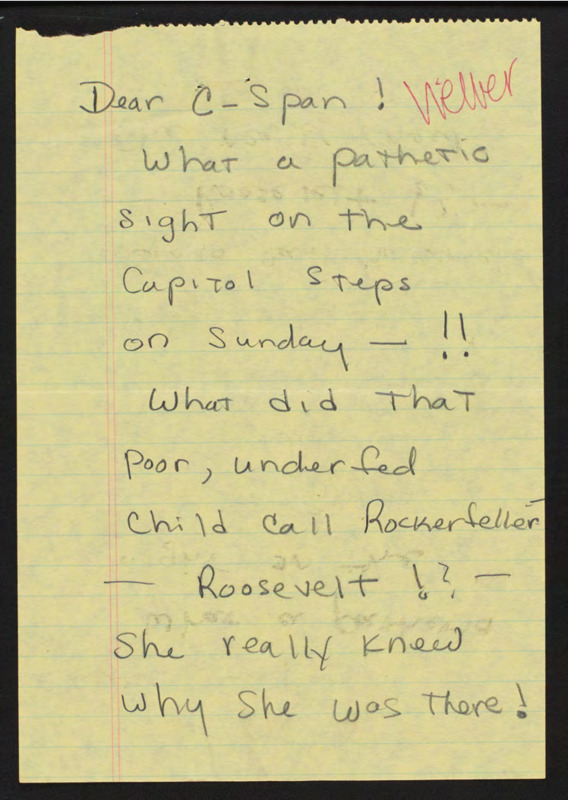 Dear C-Span!
What a pathetic
sight on the
Capitol Steps
on Sunday — !!
What did that
poor, underfed
child call Rockerfeller
— Roosevelt !? —
She really knew
why she was there!